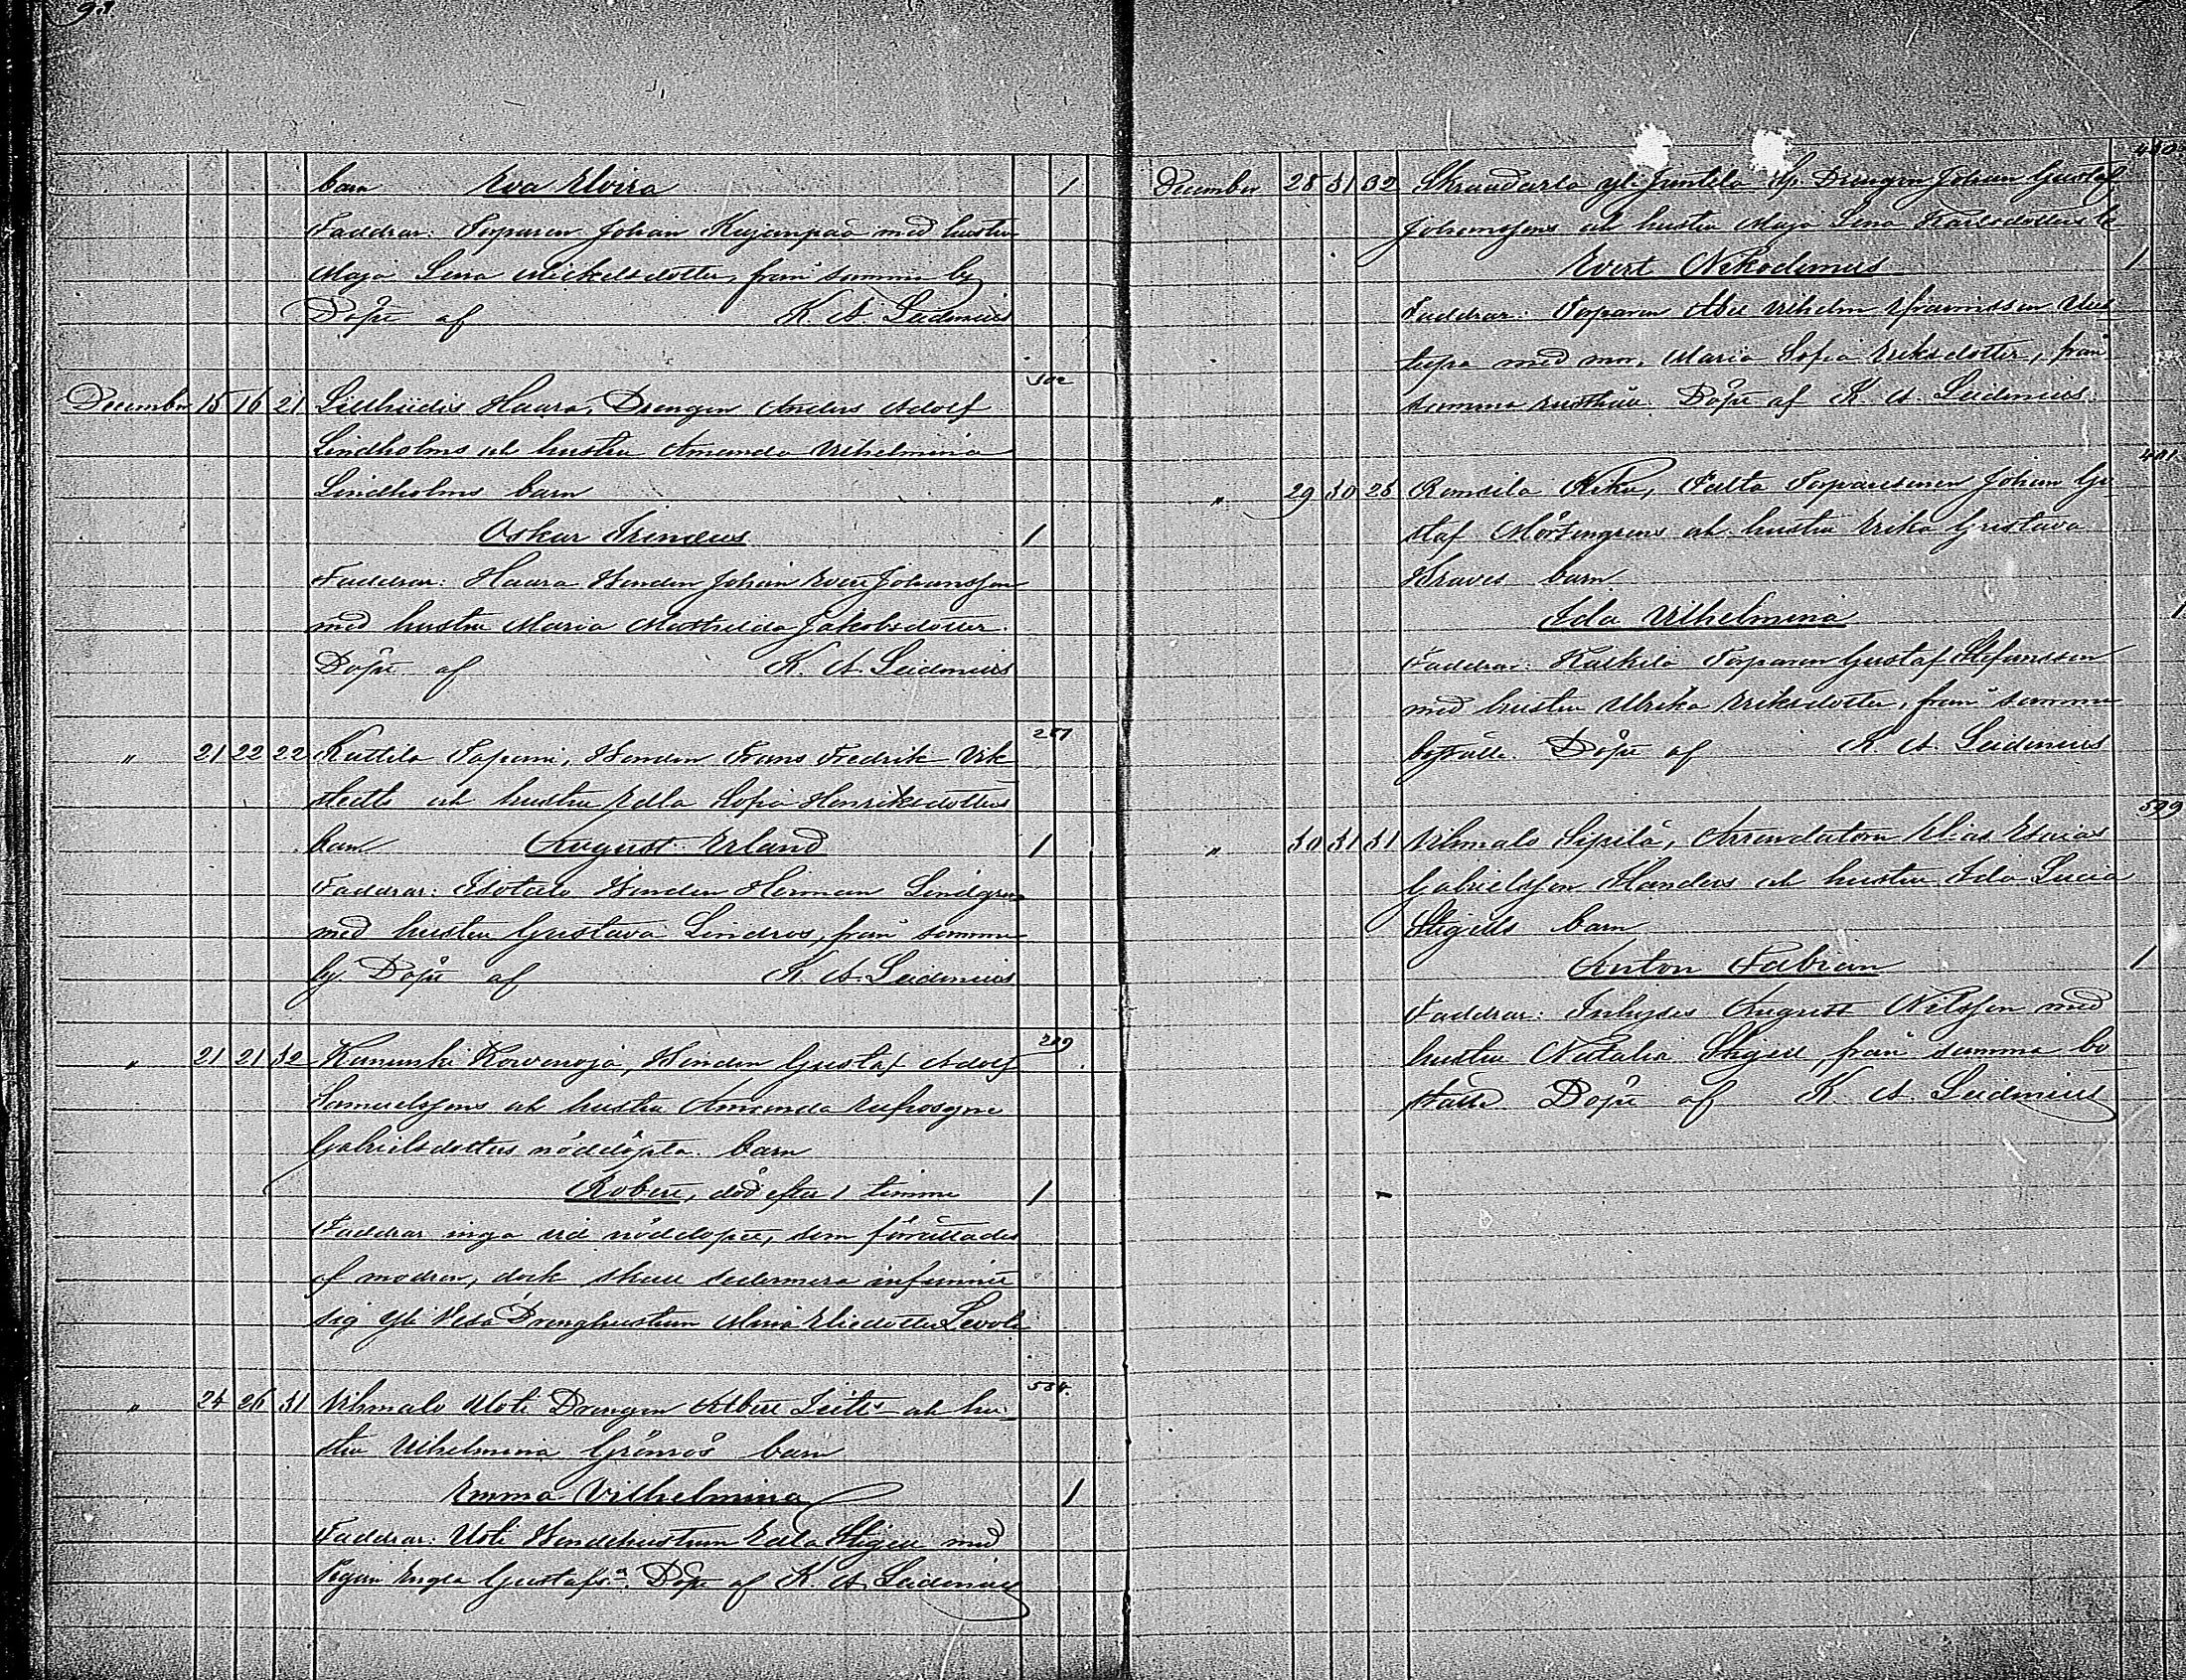 93
barn Eva Elvira 1
Faddrar: Torparen Johan Kujanpää med hustru
Maja Lena Mickelsdotter, från samma by
Döpt af K. A. Leidenius
302
December 15 16 21 Haara, Drengen Anders Adolf
Lindholms och hustru Amanda Vilhelmina
Lindholms barn
Oskar Irineus 1
Faddrar: Haara Bonden Johan Evert Johansson
med hustru Maria Mathilda Jakobsdotter.
Döpt af K. A. Leidenius
257
" 21 22 22 Kuttila Tapani, Bonden Frans Fredrik Vik
stedts och hustru Edla Sofia Henriksdotters
barn August Erland 1
Faddrar: Isotalo Bonden Herman Lindgren
med hustru Gustava Lindros, från samma
by. Döpt af K. A. Leidenius
209
" 21 21 32 Bonden Gustaf Adolf
Samuelssons och hustru Amanda Eufrosyne
Gabrielsdotters nöddöpta barn
Robert, död efter 1 timme 1
Faddrar inga vid nöddopet, som förrättades
af modren, dock skall sedermera infunnit
sig Yli Vesa Drenghustrun Maria Eliedotter
534.
" 24 26 31 Vihmalo Uoti Drengen Albert och hu
stru Vilhelmina Grönros barn
Emma Vilhelmina 1
Faddrar: Uoti Bondehustrun Edla Stigell med
Pigan Engla Gustafsdr. Döpt af K. A. Leidenius
430
December 28 31 32 yli Juntila Drengen Johan Gustaf
Johanssons och hustru Maja Lena Karlsdotters b.
Evert Nikodemus 1
Faddrar: Torparen Abel Vilhelm Efraimsson
med mor. Maria Sofia Eriksdotter, från
samma rusthåll. Döpt af K. A. Leidenius.
401
" 29 30 28 Torparesonen Johan Gu
staf Mårtengrens och hustru Erika Gustava
barn
Ida Vilhelmina 1
Faddrar: Kaskila Torparen Gustaf Stefansson
med hustru Ulrika Eriksdotter, från samma
boställe. Döpt af K. A. Leidenius
599
" 30 31 31 Vihmalo Sipilä, Arrendatorn Elias Esaias
Gabrielsson Handers och hustru Ida Lucia
Stigells barn
Anton Fabian 1
Faddrar: Inhyses August Nilsson med
hustru Natalia Stigell från samma bo
ställe Döpt af K. A. Leidenius